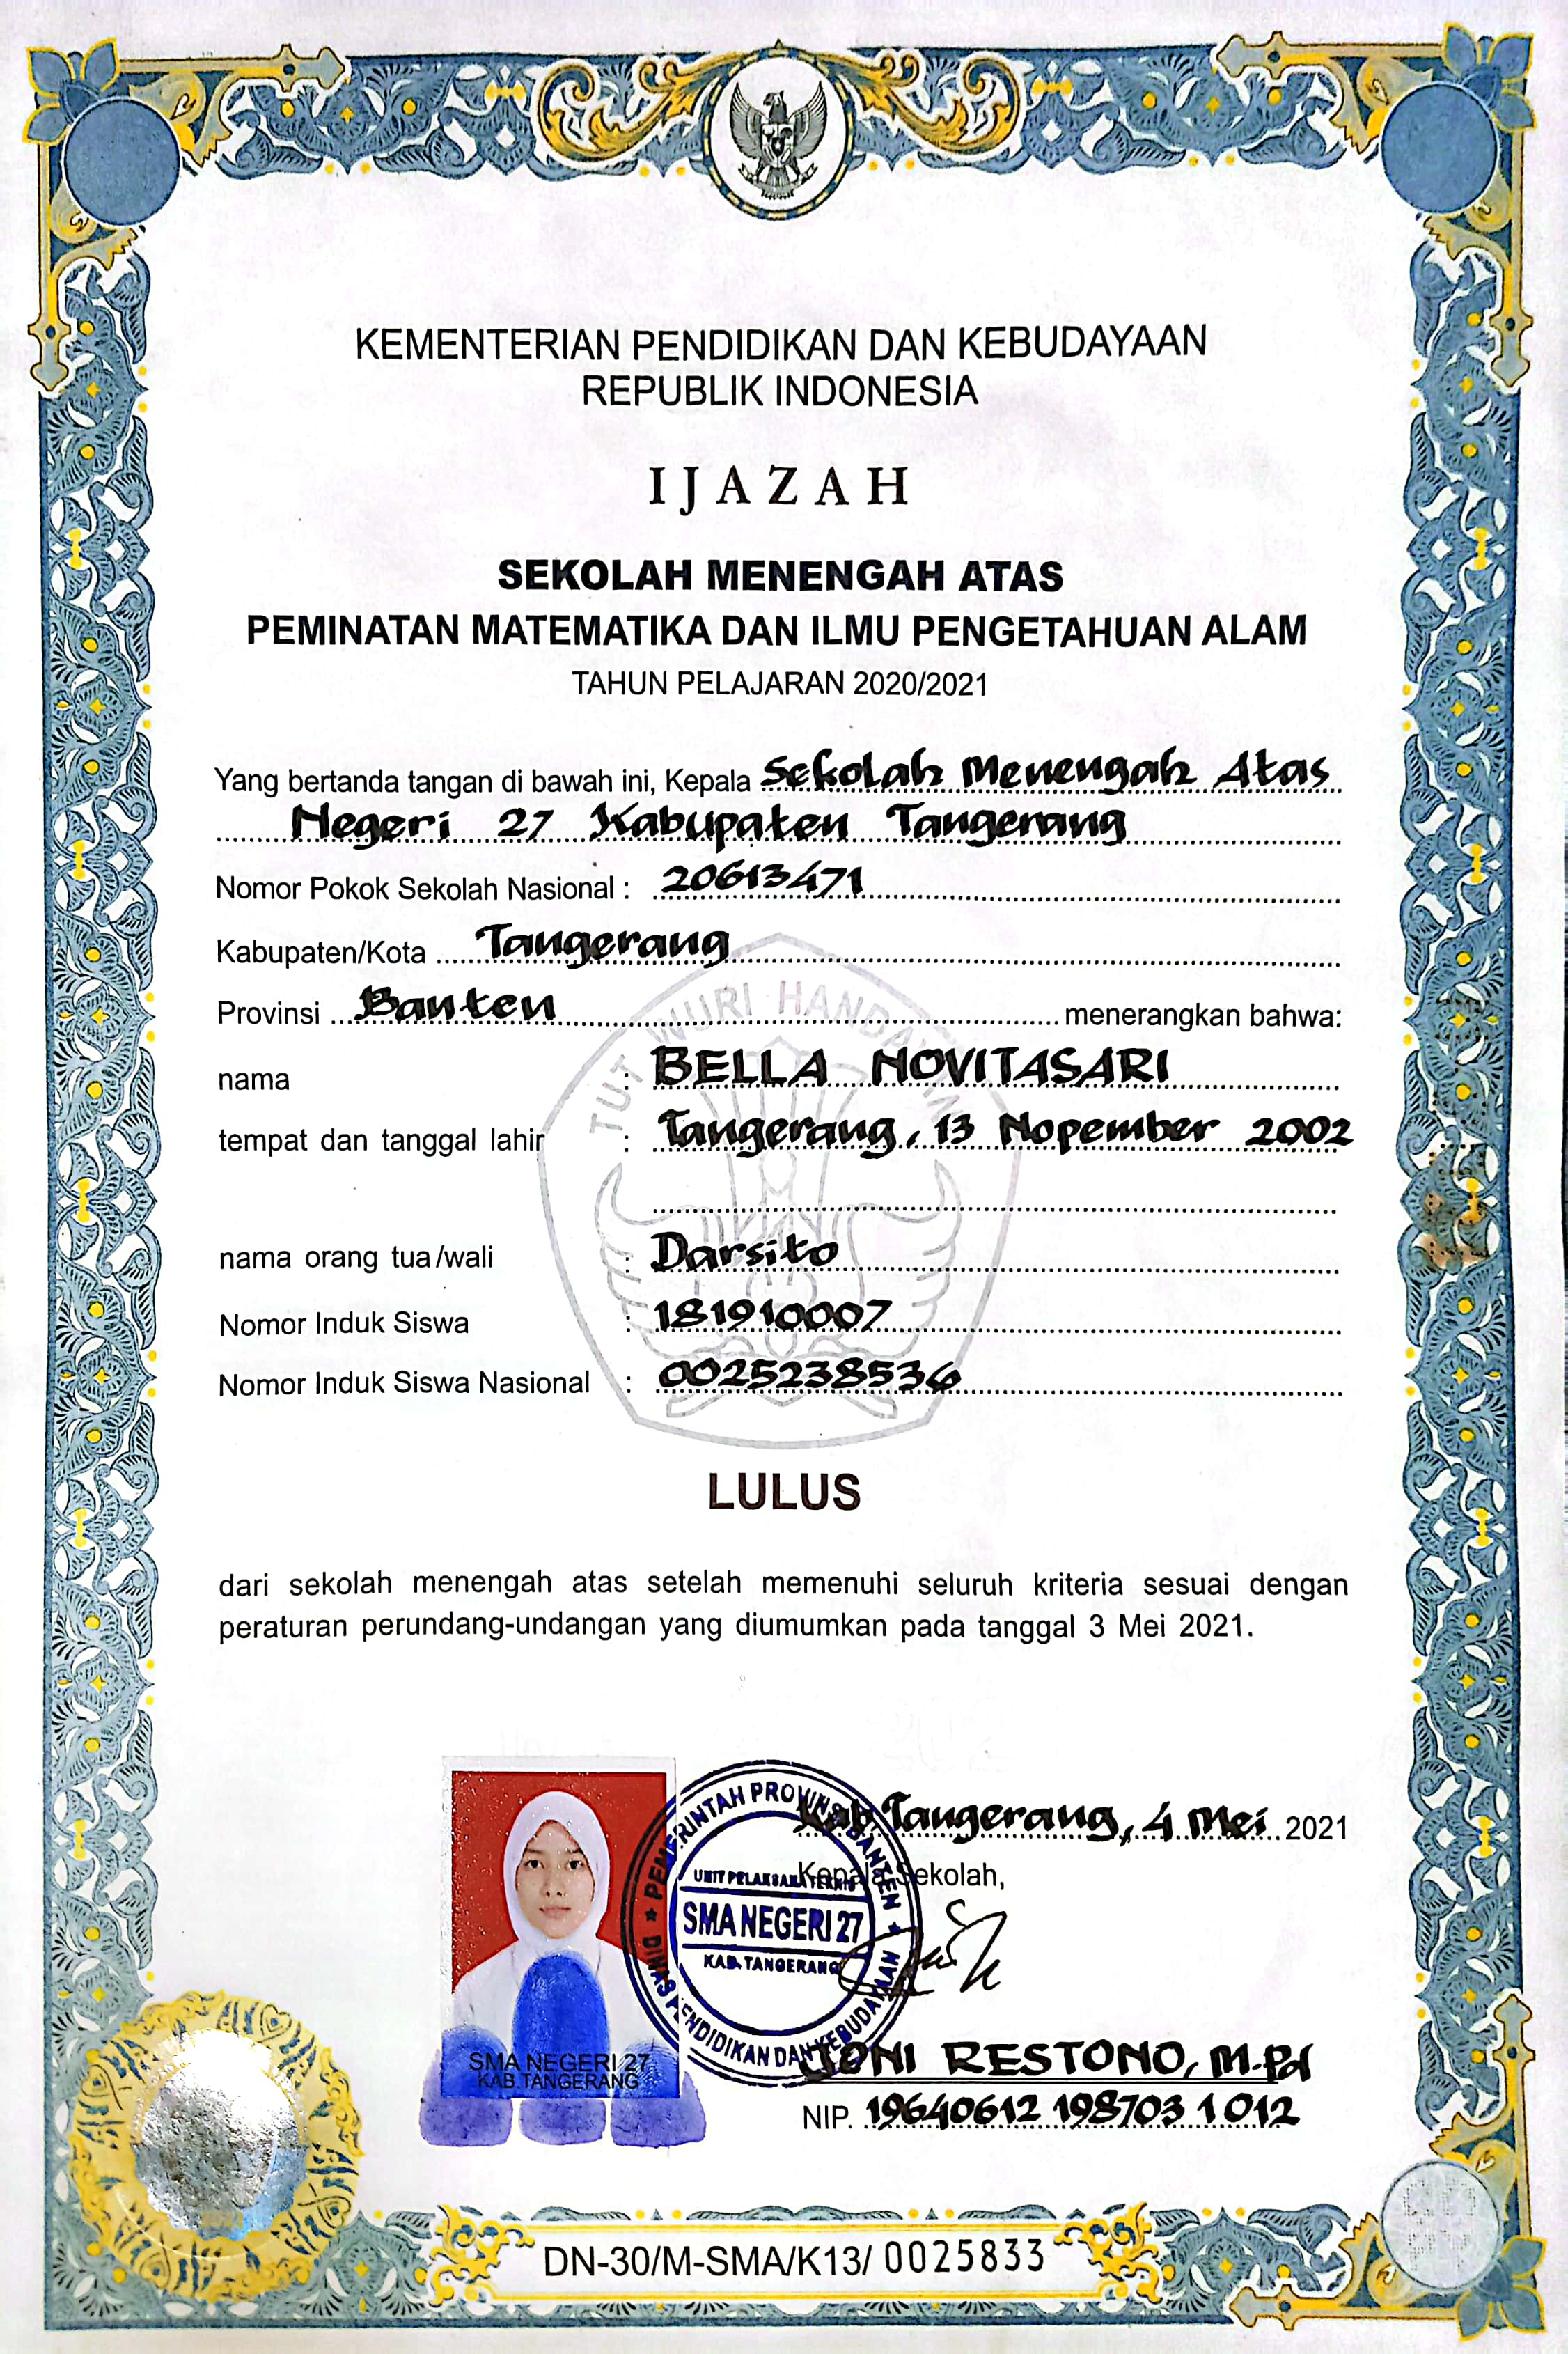 KEMENTERIAN PENDIDIKAN DAN KEBUDAYAAN
REPUBLIK INDONESIA
IJAZAH
SEKOLAH MENENGAH ATAS
PEMINATAN MATEMATIKA DAN ILMU PENGETAHUAN ALAM
TAHUN PELAJARAN 2020/2021
Yang bertanda tangan di bawah ini, Kepala Sekolah Menengah Atas
Negeri 27 Kabupaten Tangerang
Nomor Pokok Sekolah Nasional : 20613471
Kabupaten/Kota Tangerang
Provinsi Banten menerangkan bahwa:
TUT WURI HANDAYANI
nama : BELLA NOVITASARI
tempat dan tanggal lahir : Tangerang, 13 Nopember 2002
nama orang tua/wali : Darsito
Nomor Induk Siswa : 181910007
Nomor Induk Siswa Nasional : 0025238536
LULUS
dari sekolah menengah atas setelah memenuhi seluruh kriteria sesuai dengan
peraturan perundang-undangan yang diumumkan pada tanggal 3 Mei 2021.
Kab Tangerang, 4 Mei 2021
Kepala Sekolah,
PEMERINTAH PROVINSI BANTEN
DINAS PENDIDIKAN DAN KEBUDAYAAN
UNIT PELAKSANA TEKNIS
SMA NEGERI 27
KAB. TANGERANG
SMA NEGERI 27
KAB.TANGERANG
JONI RESTONO, M.Pd
NIP. 19640612 198703 1 012
DN-30/M-SMA/K13/ 0025833